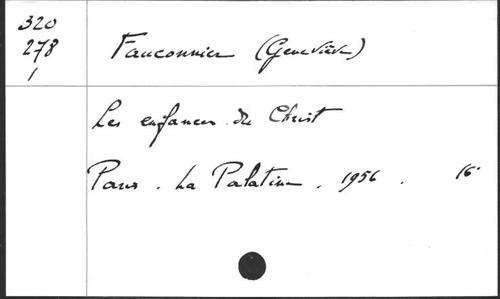 320
278
1
Fauconnier (Geneviève)
Les enfances du Christ
Paris. La Palatine. 1956. 16°